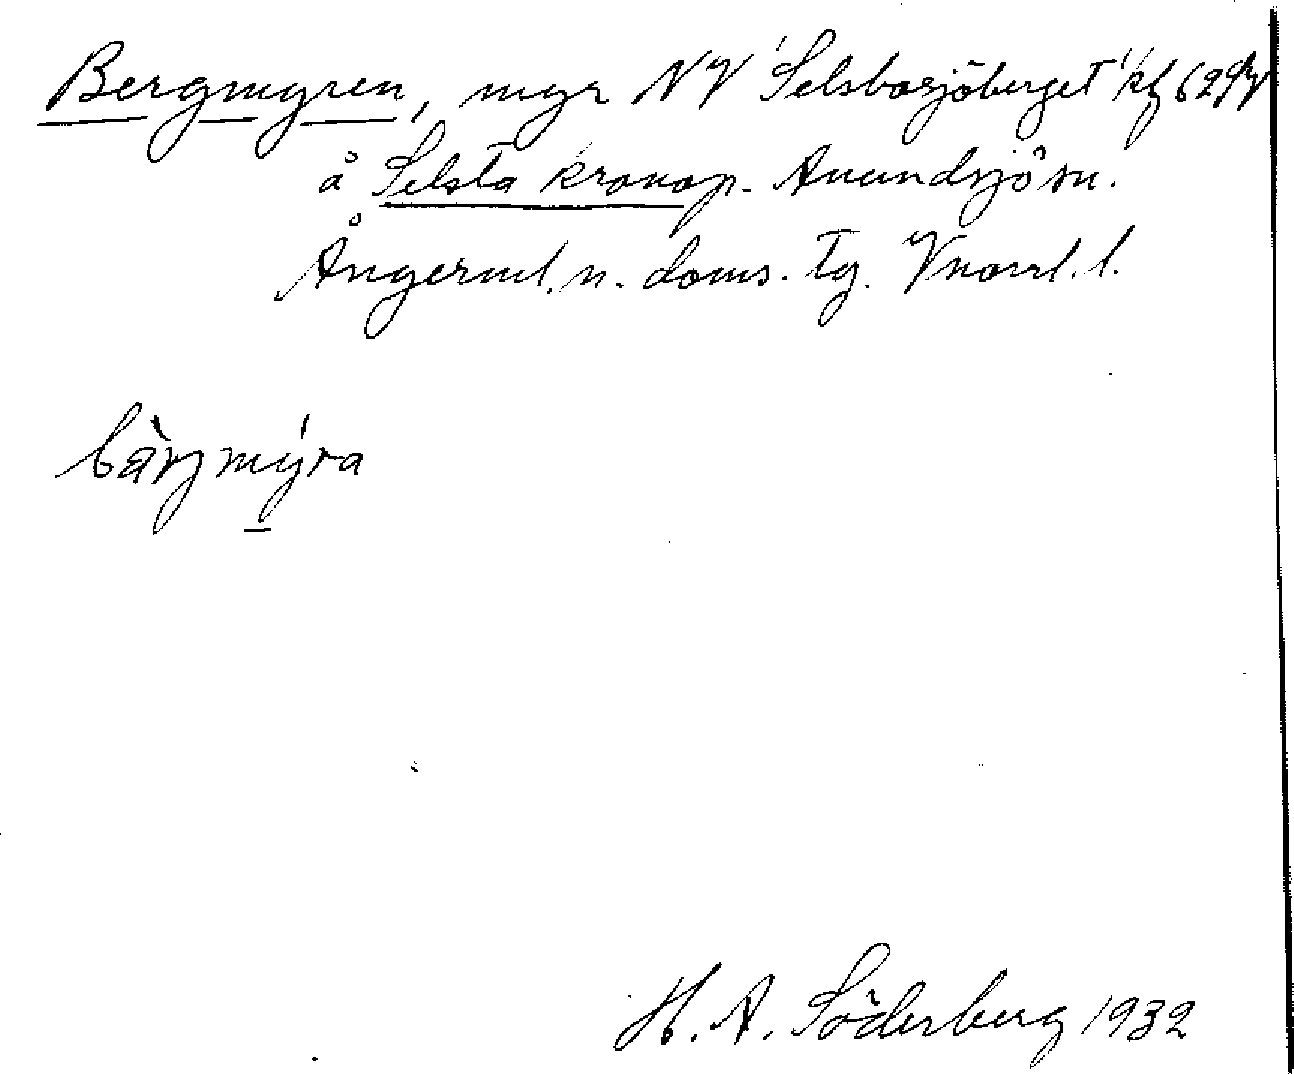 Bergmyren, myr NV 'Selsborsjöberget' kbl 62 NV
å Selsta kronop. Anundsjö sn.
Ångerml. n. doms. tg. Vnorrl. l.
bàrjmýra
H. A. Söderberg 1932